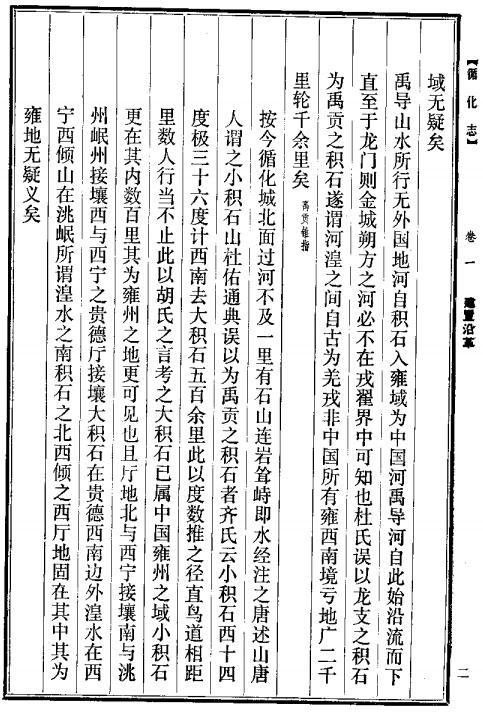 【循化志】 卷一 建置沿革 二
域无疑矣
禹导山水所行无外国地河自积石入雍域为中国河禹导河自此始沿流而下
直至于龙门则金城朔方之河必不在戎翟界中可知也杜氏误以龙支之积石
为禹贡之积石遂谓河湟之间自古为羌戎非中国所有雍西南境亏地广二千
里轮千余里矣 禹贡锥指
按今循化城北面过河不及一里有石山连岩耸峙即水经注之唐述山唐
人谓之小积石山杜佑通典误以为禹贡之积石者齐氏云小积石西十四
度极三十六度计西南去大积石五百余里此以度数推之径直鸟道相距
里数人行当不止此以胡氏之言考之大积石已属中国雍州之域小积石
更在其内数百里其为雍州之地更可见也且厅地北与西宁接壤南与洮
州岷州接壤西与西宁之贵德厅接壤大积石在贵德西南边外湟水在西
宁西倾山在洮岷所谓湟水之南积石之北西倾之西厅地固在其中其为
雍地无疑义矣